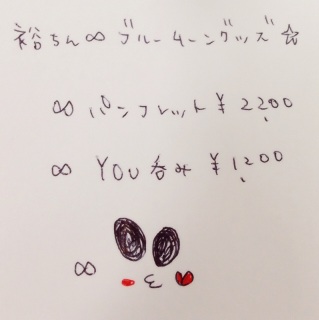 裕ちん∞ブルームーングッズ☆
∞ パンフレット¥2,200
∞ YOU呑み ¥1,200
∞